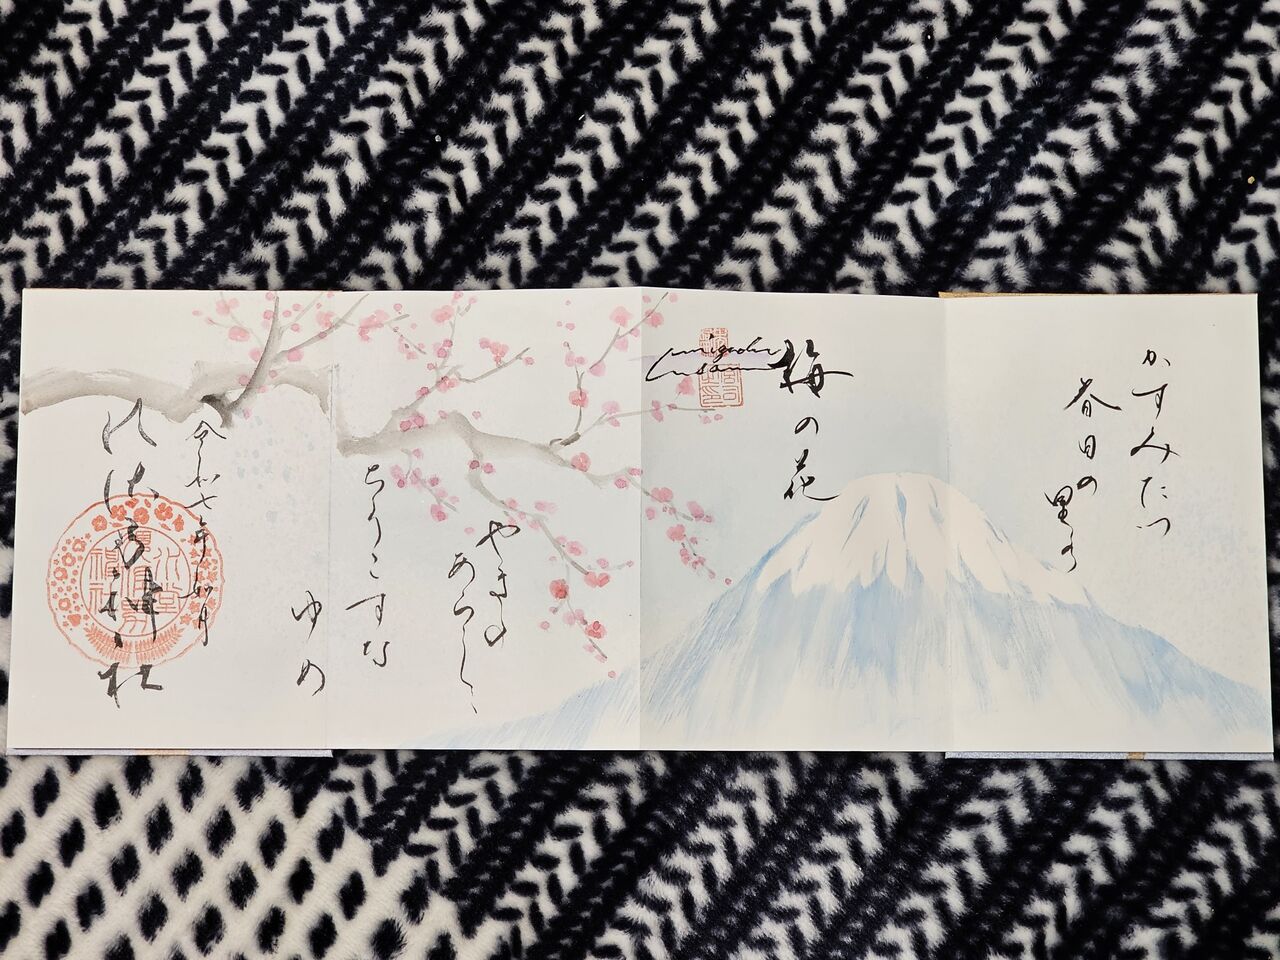 かすみたつ
春日の里の
梅の花
やまの
あらしに
ちりこすな
ゆめ
令和七年如月